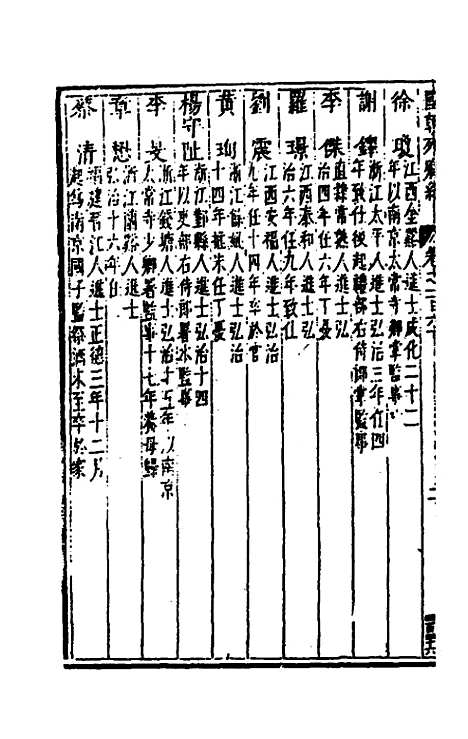 國朝列卿紀 卷之一百六十
徐瓊 江西金谿人進士成化二十二
年以南京太常寺卿掌監事
謝鐸 浙江太平人進士弘治三年任四
年致仕後起禮部右侍郎掌監事
李傑 直隸常熟人進士弘
治四年任六年丁憂
羅璟 江西泰和人進士弘
治六年任九年致仕
劉震 江西安福人進士弘治
九年任十四年卒於官
黃珣 浙江餘姚人進士弘治
十四年起未任丁憂
楊守阯 浙江鄞縣人進士弘治十四
年以吏部右侍郎署本監事
李旻 浙江錢塘人進士弘治十五年以南京
太常寺少卿署監事十七年養母歸
章懋 浙江蘭谿人進士
弘治十六年任
蔡清 福建晉江人進士正德三年十二月
起為南京國子監祭酒未至卒於家